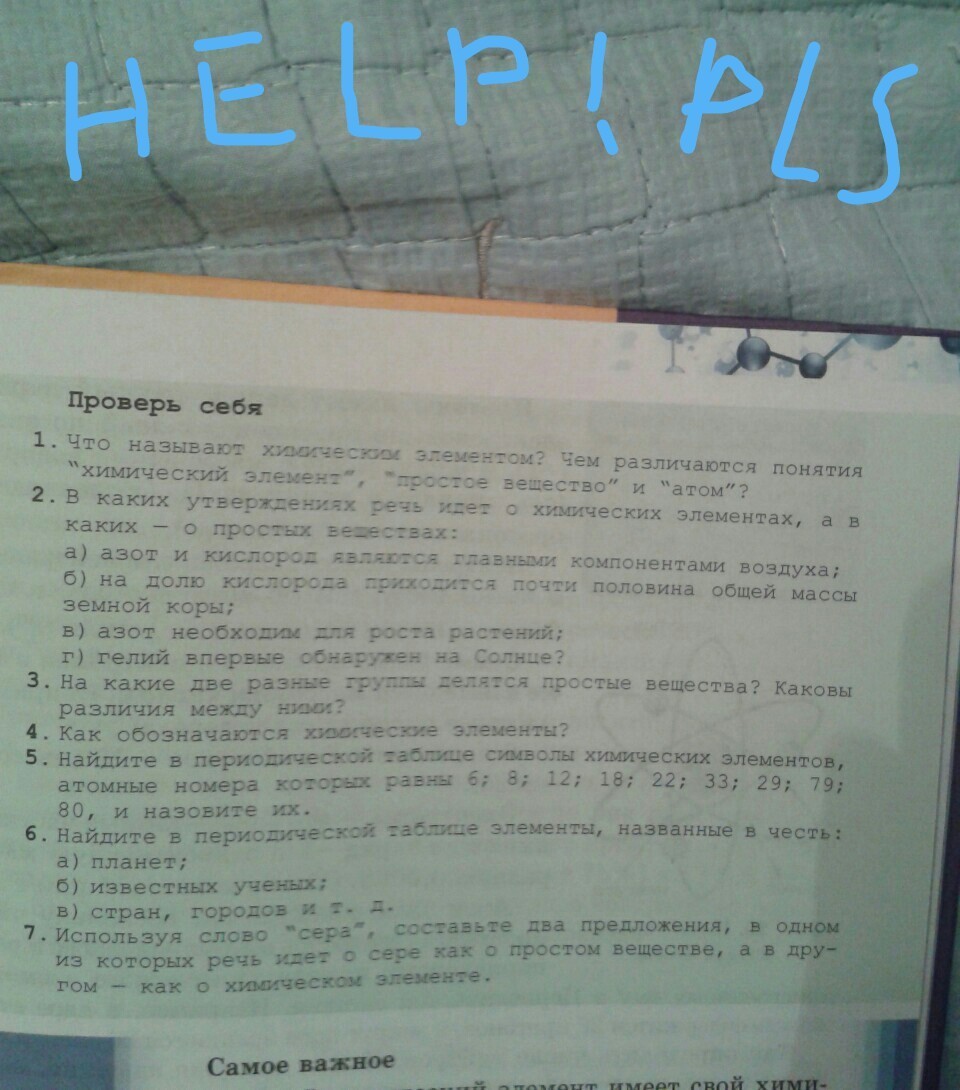 HELP! PLS
Проверь себя
1. Что называют химическим элементом? Чем различаются понятия
“химический элемент”, “простое вещество” и “атом”?
2. В каких утверждениях речь идет о химических элементах, а в
каких — о простых веществах:
а) азот и кислород являются главными компонентами воздуха;
б) на долю кислорода приходится почти половина общей массы
земной коры;
в) азот необходим для роста растений;
г) гелий впервые обнаружен на Солнце?
3. На какие две разные группы делятся простые вещества? Каковы
различия между ними?
4. Как обозначаются химические элементы?
5. Найдите в периодической таблице символы химических элементов,
атомные номера которых равны 6; 8; 12; 18; 22; 33; 29; 79;
80, и назовите их.
6. Найдите в периодической таблице элементы, названные в честь:
а) планет;
б) известных ученых;
в) стран, городов и т. д.
7. Используя слово “сера”, составьте два предложения, в одном
из которых речь идет о сере как о простом веществе, а в дру-
гом — как о химическом элементе.
Самое важное
элемент имеет свой хими-